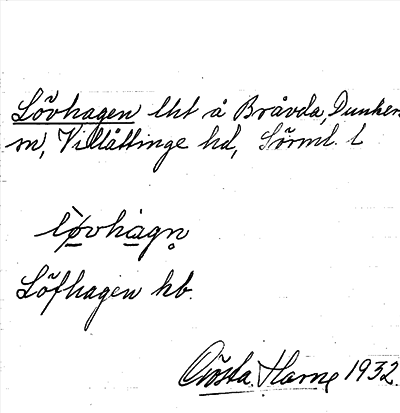 Lövhagen lht å Bråvda, Dunkers
sn, Villåttinge hd, Sörml. l
lövhagn̥
Löfhagen hb.
Gösta Harne 1932.